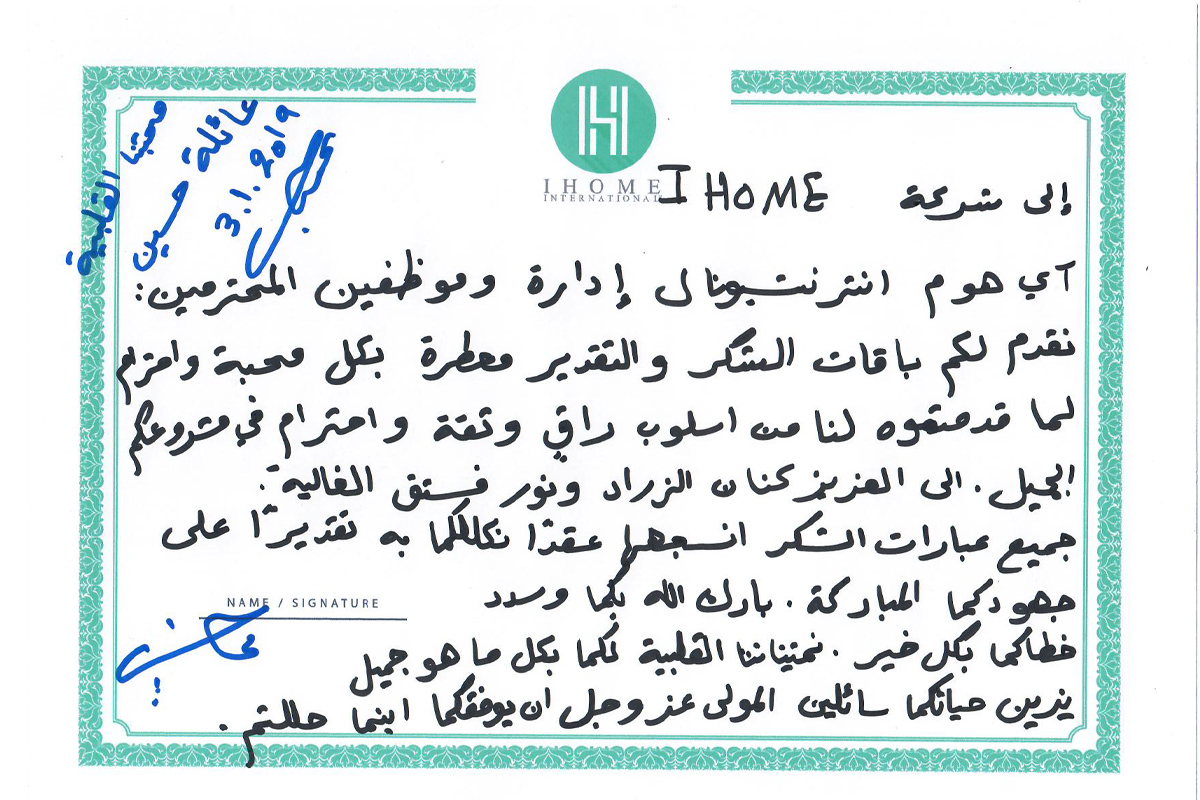 IHOME
INTERNATIONAL
إلى شركة I HOME
آي هوم انترنتيونال إدارة وموظفين المحترمين:
نقدم لكم باقات الشكر والتقدير معطرة بكل محبة واحترام
لما قدمتموه لنا من اسلوب راقي وثقة واحترام في مشروعكم
الجميل. الى العزيز كنان الزراد ونور فستق الغالية.
جميع عبارات الشكر انسجها عقدًا نكللكما به تقديرًا على
جهودكما المباركة. بارك الله بكما وسدد
خطاكما بكل خير. تمنياتنا القلبية لكما بكل ما هو جميل
يزين حياتكما سائلين المولى عز وجل ان يوفقكما اينما حللتم.
محبتنا القلبية
عائلة حسين
3.1.2019
NAME / SIGNATURE